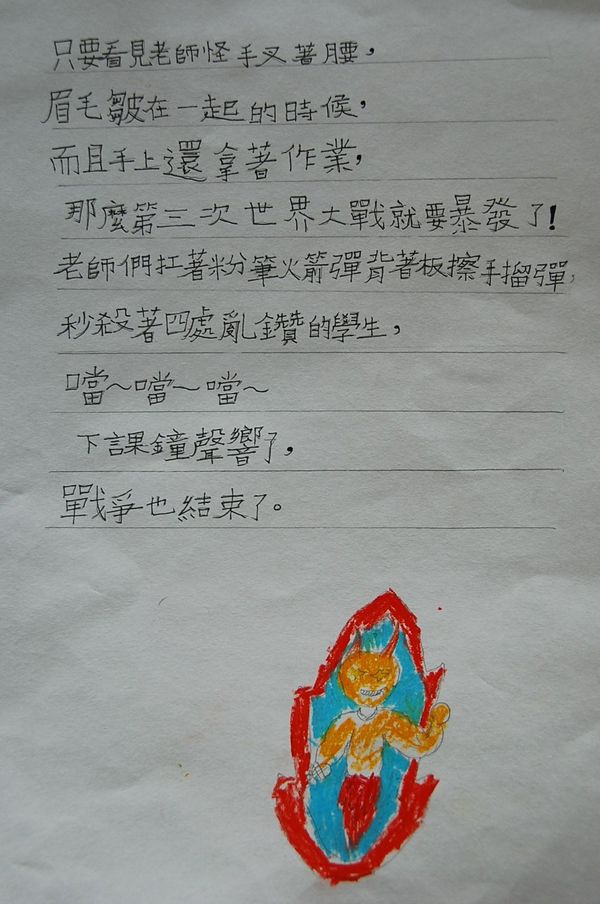 只要看見老師怪手叉著腰，
眉毛皺在一起的時候，
而且手上還拿著作業，
那麼第三次世界大戰就要暴發了！
老師們扛著粉筆火箭彈背著板擦手榴彈，
秒殺著四處亂鑽的學生，
噹～噹～噹～
下課鐘聲響了，
戰爭也結束了。